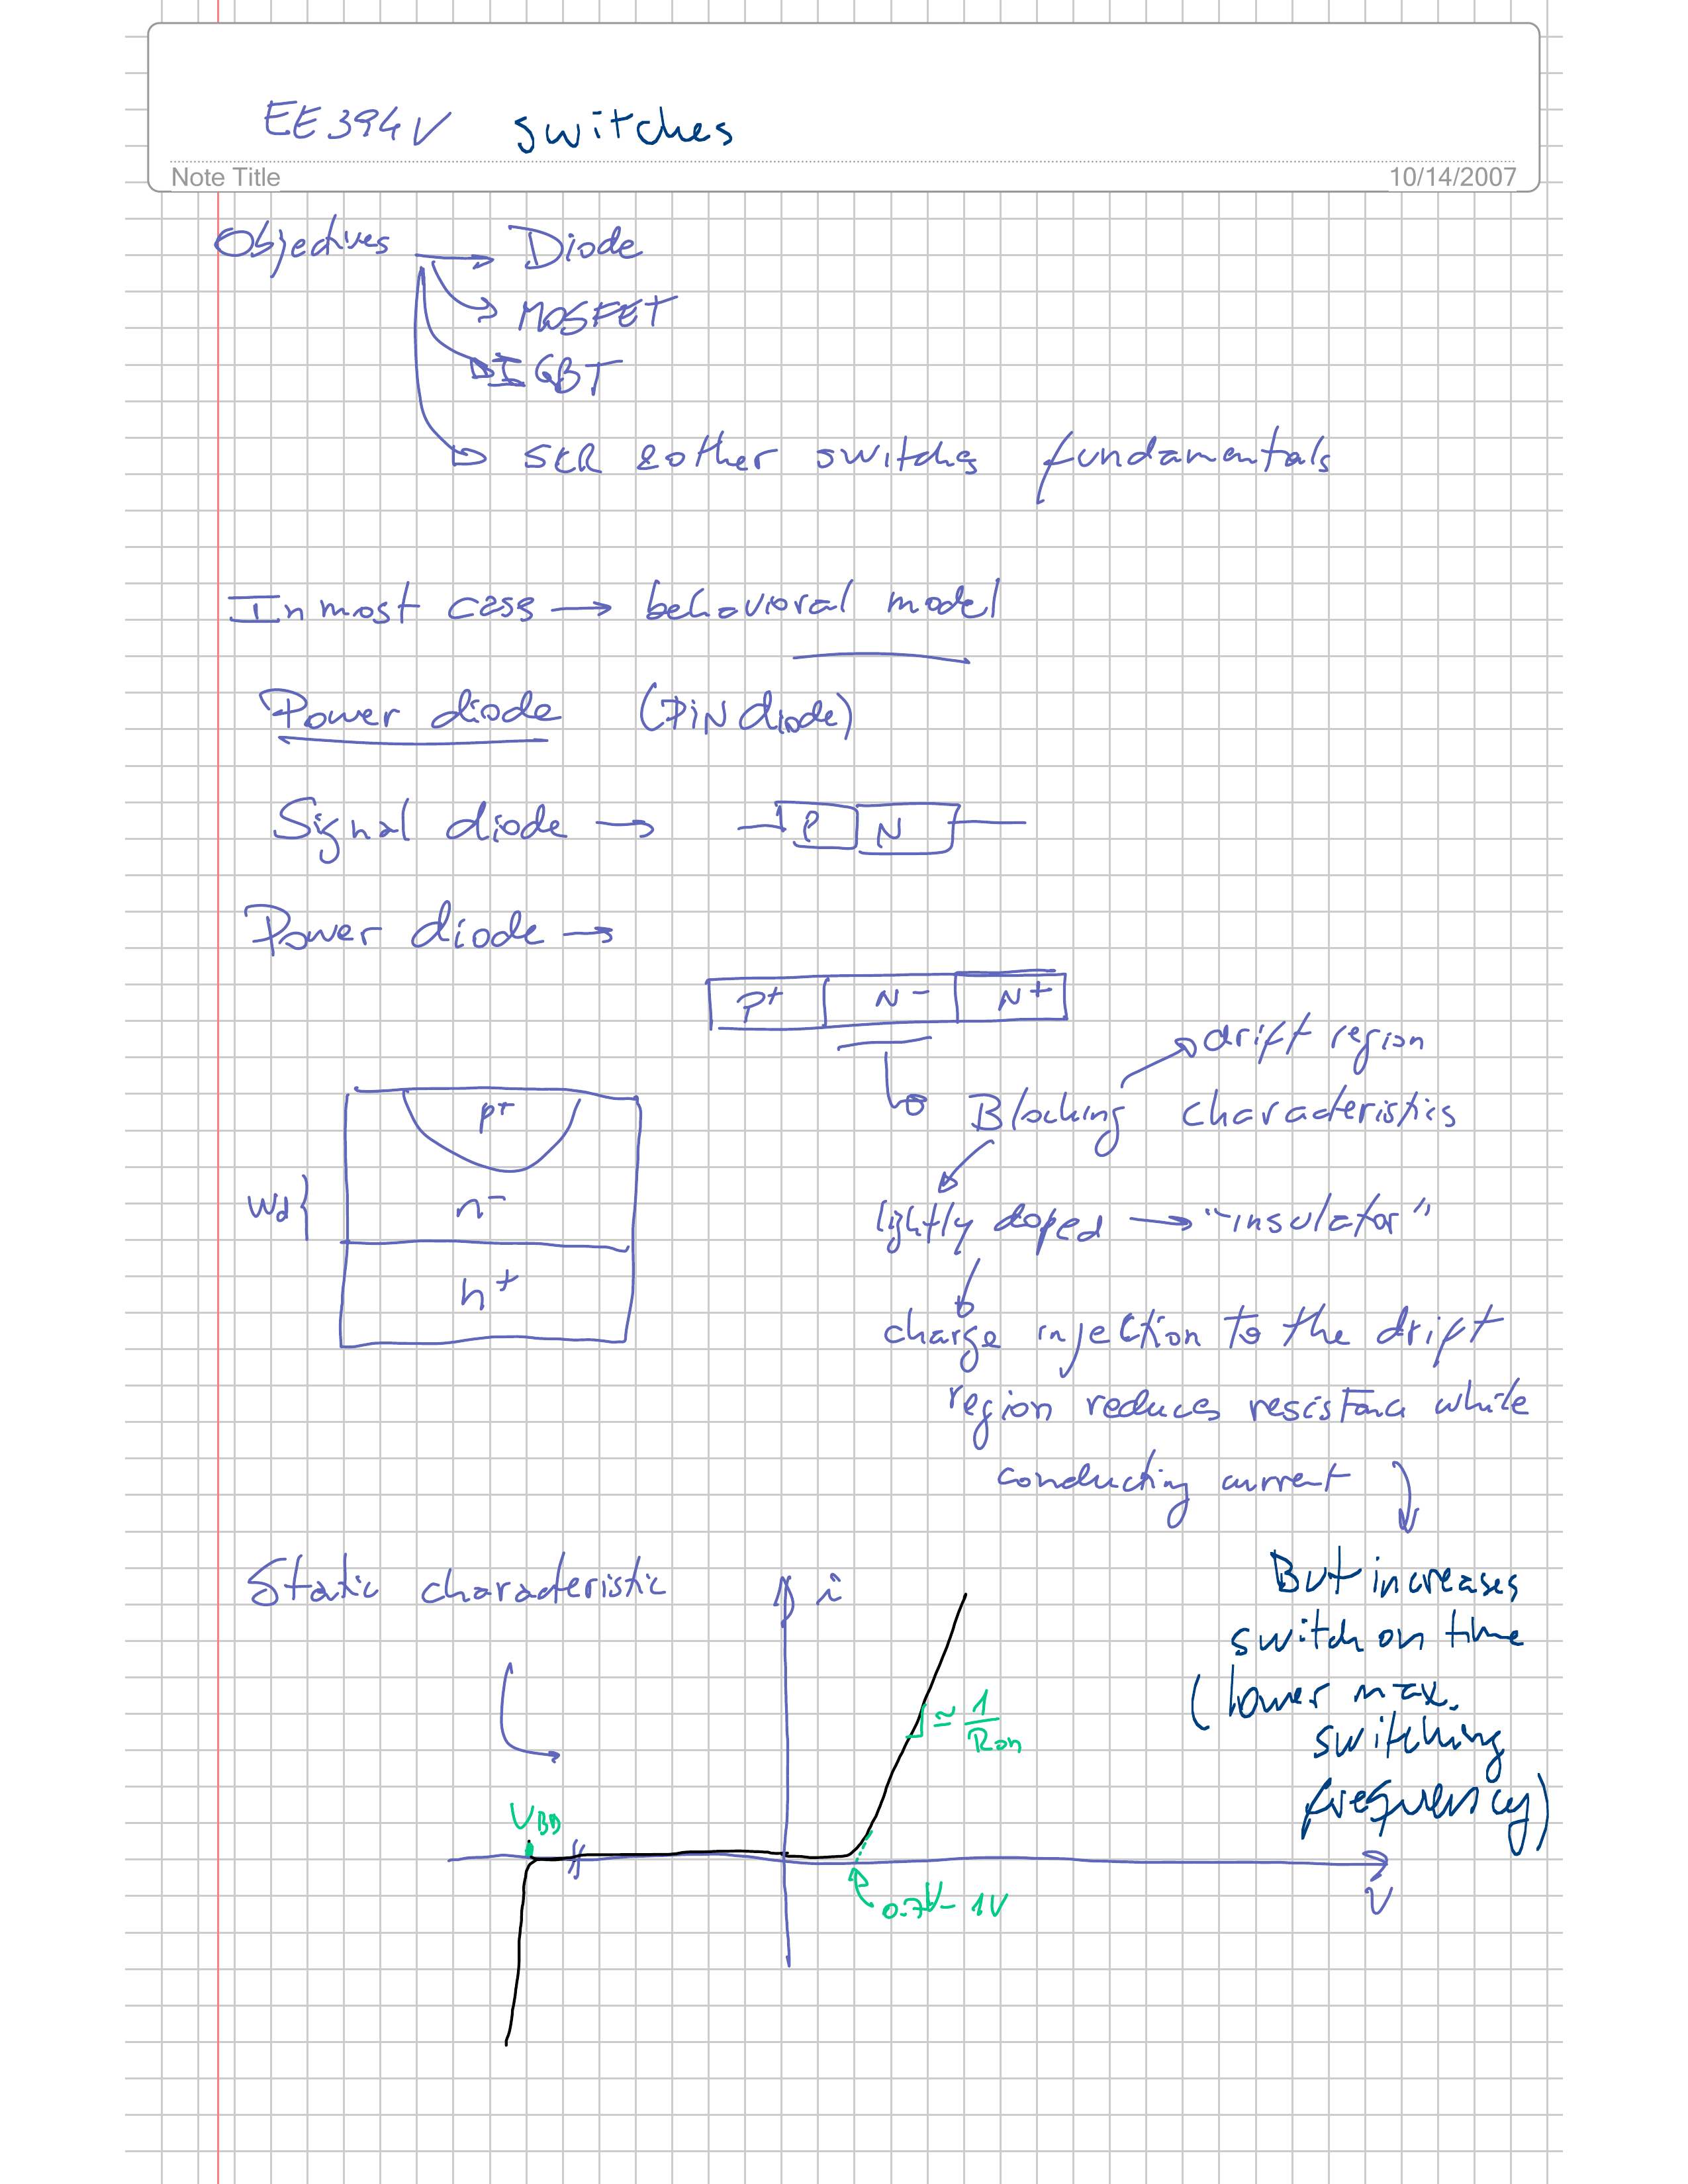 EE394V switches
Note Title
10/14/2007
Objectives → Diode
MOSFET
IGBT
SCR & other switches fundamentals
In most cases → behavioral model
Power diode (PiN diode)
Signal diode → P N
Power diode →
P+ N- N+
drift region
Blocking characteristics
p+
Wd { n-
lightly doped → "insulator"
n+
charge injection to the drift
region reduces resistance while
conducting current
Static characteristic
i
But increases
switch on time
(lower max.
switching
frequency)
≃ 1/Ron
VBD
0.7V - 1V
V